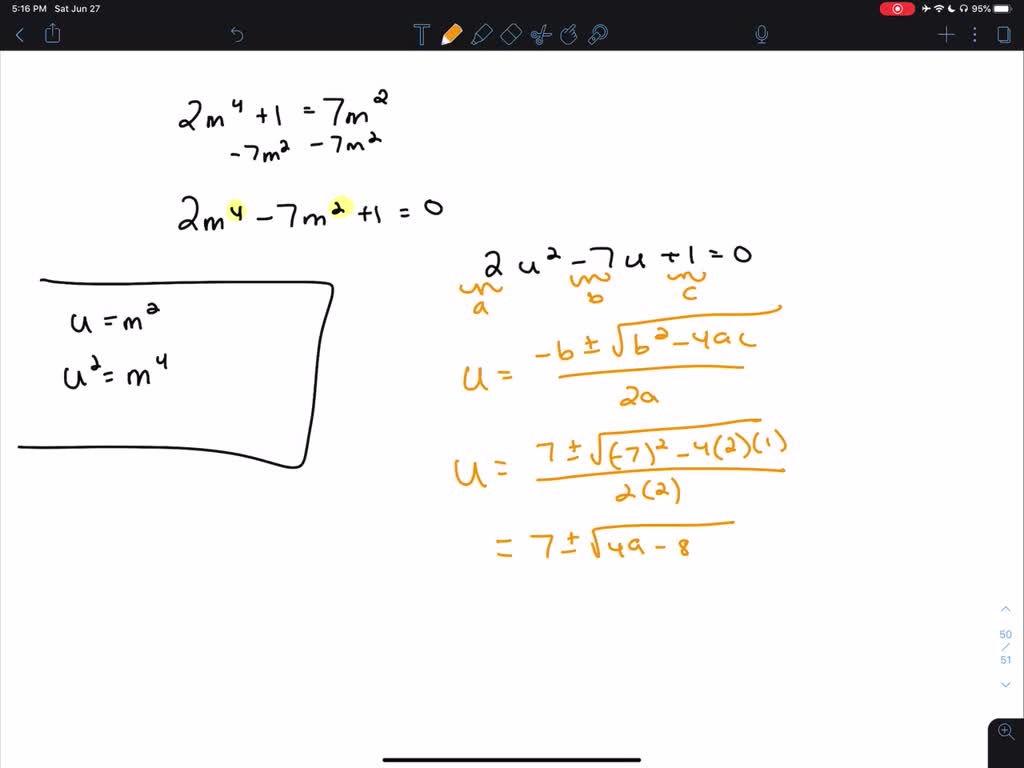 5:16 PM Sat Jun 27
95%
2m⁴ +1 = 7m²
-7m² -7m²
2m⁴ - 7m² +1 = 0
2u² - 7u +1 = 0
a b c
u = m²
u² = m⁴
u = (-b ± √(b² - 4ac)) / 2a
u = (7 ± √((-7)² - 4(2)(1))) / 2(2)
= 7 ± √(49 - 8)
50
/
51